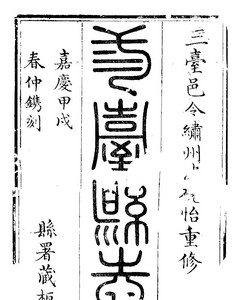 三臺邑令繡州沈昭怡重修
三臺縣志
嘉慶甲戌
春仲鐫刻
縣署藏板